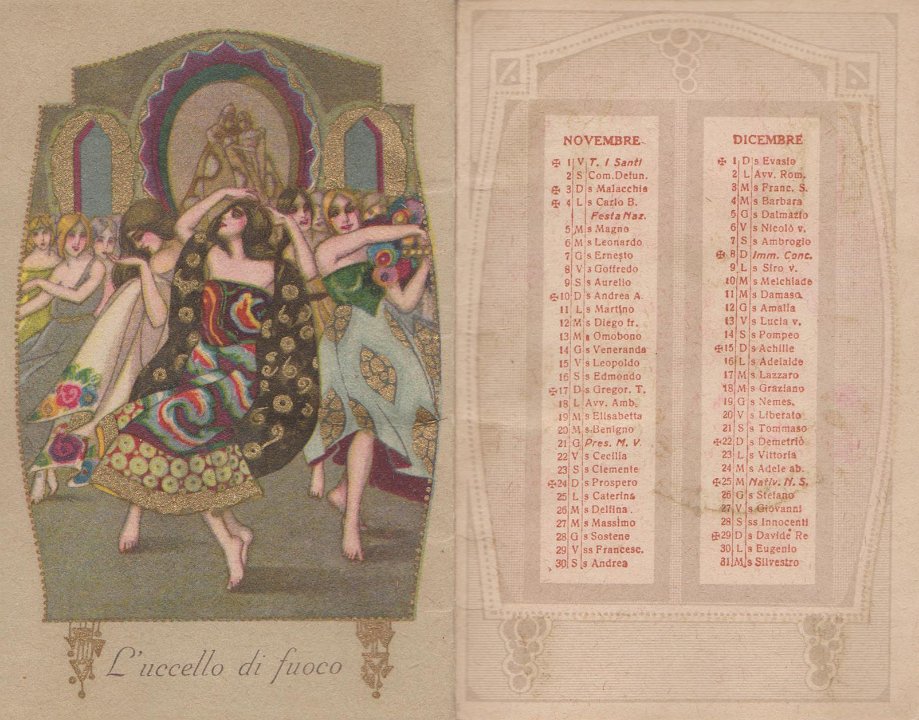 L'uccello di fuoco
NOVEMBRE
✠ 1 V T. I Santi
2 S Com. Defun.
✠ 3 D s Malacchia
✠ 4 L s Carlo B.
Festa Naz.
5 M s Magno
6 M s Leonardo
7 G s Ernesto
8 V s Goffredo
9 S s Aurelio
✠10 D s Andrea A.
11 L s Martino
12 M s Diego fr.
13 M s Omobono
14 G s Veneranda
15 V s Leopoldo
16 S s Edmondo
✠17 D s Gregor. T.
18 L Avv. Amb.
19 M s Elisabetta
20 M s Benigno
21 G Pres. M. V.
22 V s Cecilia
23 S s Clemente
✠24 D s Prospero
25 L s Caterina
26 M s Delfina
27 M s Massimo
28 G s Sostene
29 V ss Francesc.
30 S s Andrea
DICEMBRE
✠ 1 D s Evasio
2 L Avv. Rom.
3 M s Franc. S.
4 M s Barbara
5 G s Dalmazio
6 V s Nicolò v.
7 S s Ambrogio
✠ 8 D Imm. Conc.
9 L s Siro v.
10 M s Melchiade
11 M s Damaso
12 G s Amalia
13 V s Lucia v.
14 S s Pompeo
✠15 D s Achille
16 L s Adelaide
17 M s Lazzaro
18 M s Graziano
19 G s Nemes.
20 V s Liberato
21 S s Tommaso
✠22 D s Demetrio
23 L s Vittoria
24 M s Adele ab.
✠25 M Nativ. N. S.
26 G s Stefano
27 V s Giovanni
28 S ss Innocenti
✠29 D s Davide Re
30 L s Eugenio
31 M s Silvestro